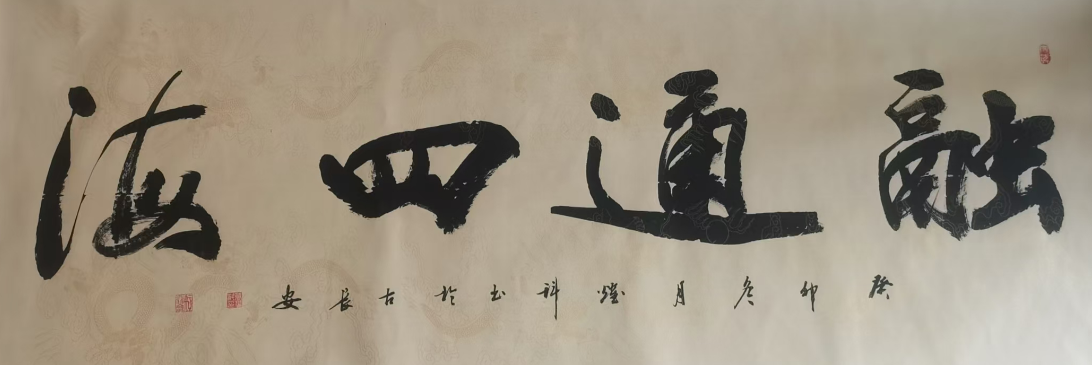 融通四海
癸卯冬月 科书於古长安